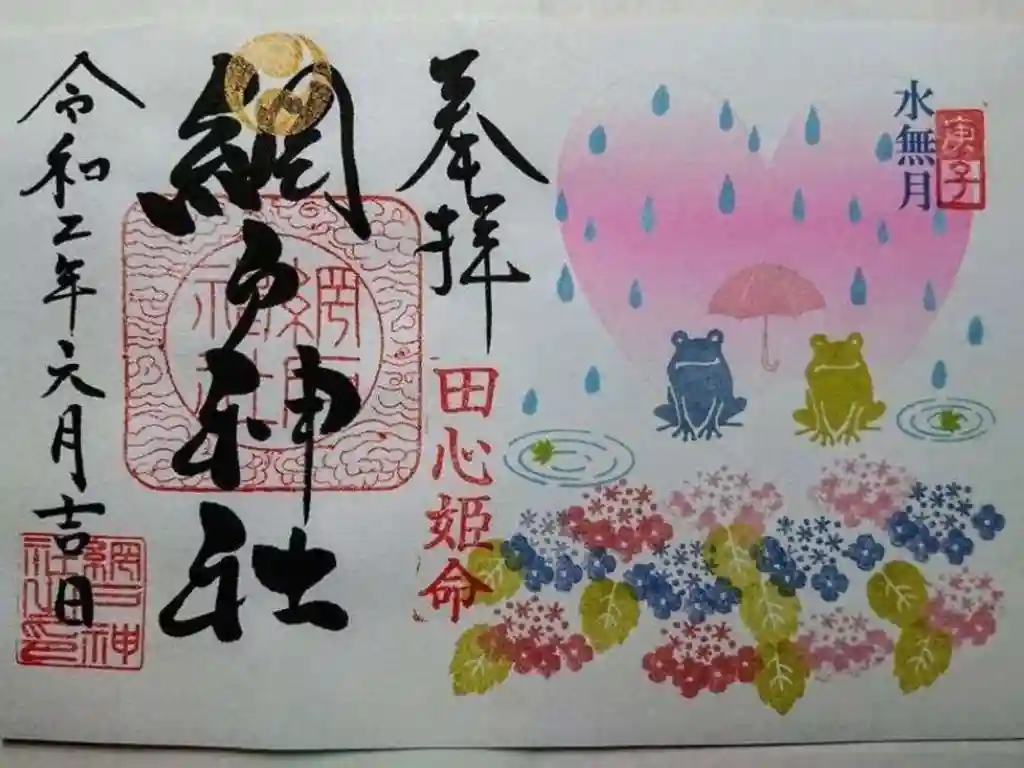 庚子
水無月
奉拝
田心姫命
網戸神社
網戸神社
令和二年六月吉日
網戸神
社之印